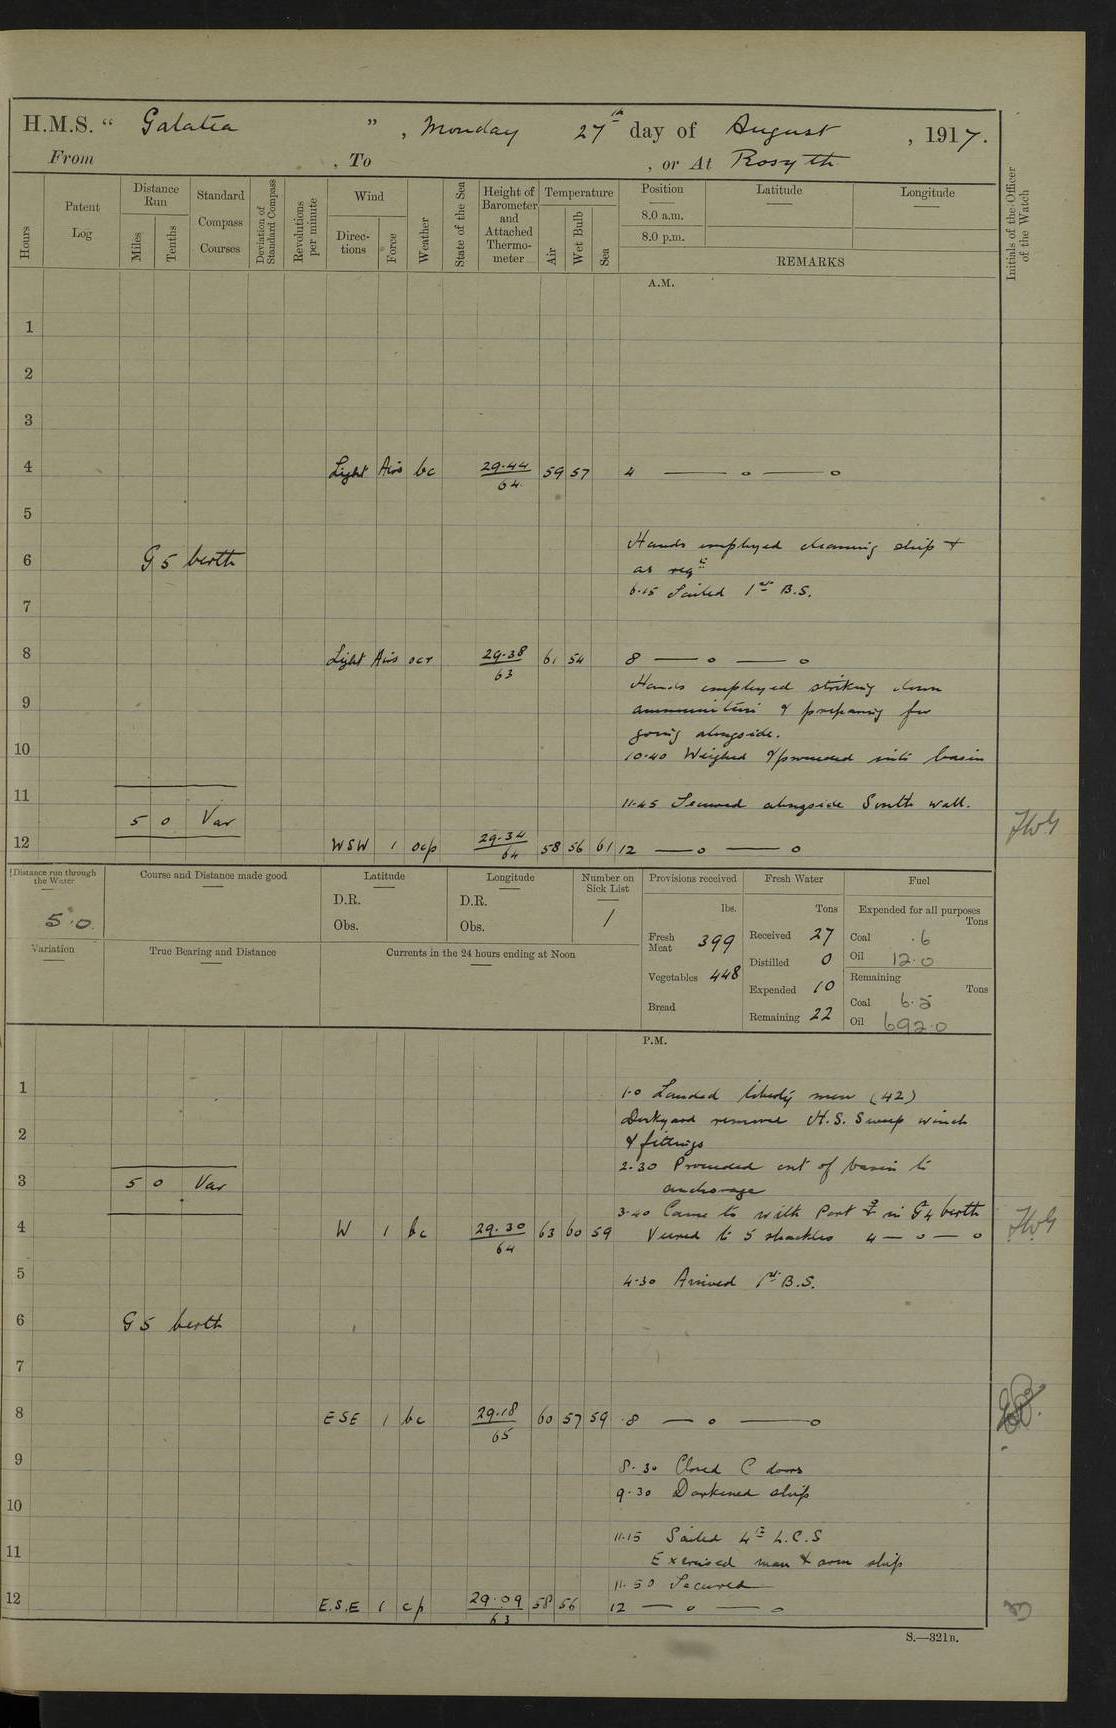 H.M.S. “ Galatea ” , Monday 27th day of August , 1917.
From , To , or At Rosyth
Hours
Patent Log
Distance Run
Miles
Tenths
Standard Compass Courses
Deviation of Standard Compass
Revolutions per minute
Wind
Direc-tions
Force
Weather
State of the Sea
Height of Barometer and Attached Thermo-meter
Temperature
Air
Wet Bulb
Sea
Position
8.0 a.m.
8.0 p.m.
Latitude
Longitude
REMARKS
Initials of the Officer of the Watch
A.M.
1
2
3
4 Light Airs bc 29.44 59 57 4 — o — o
64
5
Hands employed cleaning ship +
6 G5 berth as reqd
6.15 Sailed 1st B.S.
7
8 Light Airs ocr 29.38 61 54 8 — o — o
63
Hands employed striking down
9 ammunition & preparing for
going alongside.
10 10.40 Weighed & proceeded into basin
11 11.45 Secured alongside South wall.
5 0 Var
12 WSW 1 ocp 29.34 58 56 61 12 — o — o
64
Distance run through the Water
5.0
Course and Distance made good
Latitude
D.R.
Obs.
Longitude
D.R.
Obs.
Number on Sick List
1
Provisions received
lbs.
Fresh Meat 399
Vegetables 448
Bread
Fresh Water
Tons
Received 27
Distilled 0
Expended 10
Remaining 22
Fuel
Expended for all purposes
Tons
Coal .6
Oil 12.0
Remaining
Tons
Coal 6.5
Oil 692.0
Variation
True Bearing and Distance
Currents in the 24 hours ending at Noon
P.M.
1 1.0 Landed liberty men (42)
Dockyard remove H.S. Sweep winch
2 & fittings
2.30 Proceeded out of basin to
3 5 0 Var anchorage
3.40 Came to with Port in G4 berth
4 W 1 bc 29.30 63 60 59 Veered to 5 shackles 4 — o — o
64
5 4.30 Arrived 1st B.S.
6 G5 berth
7
8 ESE 1 bc 29.18 60 57 59 8 — o — o
65
9 8.30 Closed C doors
9.30 Darkened ship
10
11.15 Sailed 4th L.C.S
11 Exercised man & arm ship
11.50 Secured
12 E.S.E 1 cp 29.09 58 56 12 — o — o
63
S.—321B.